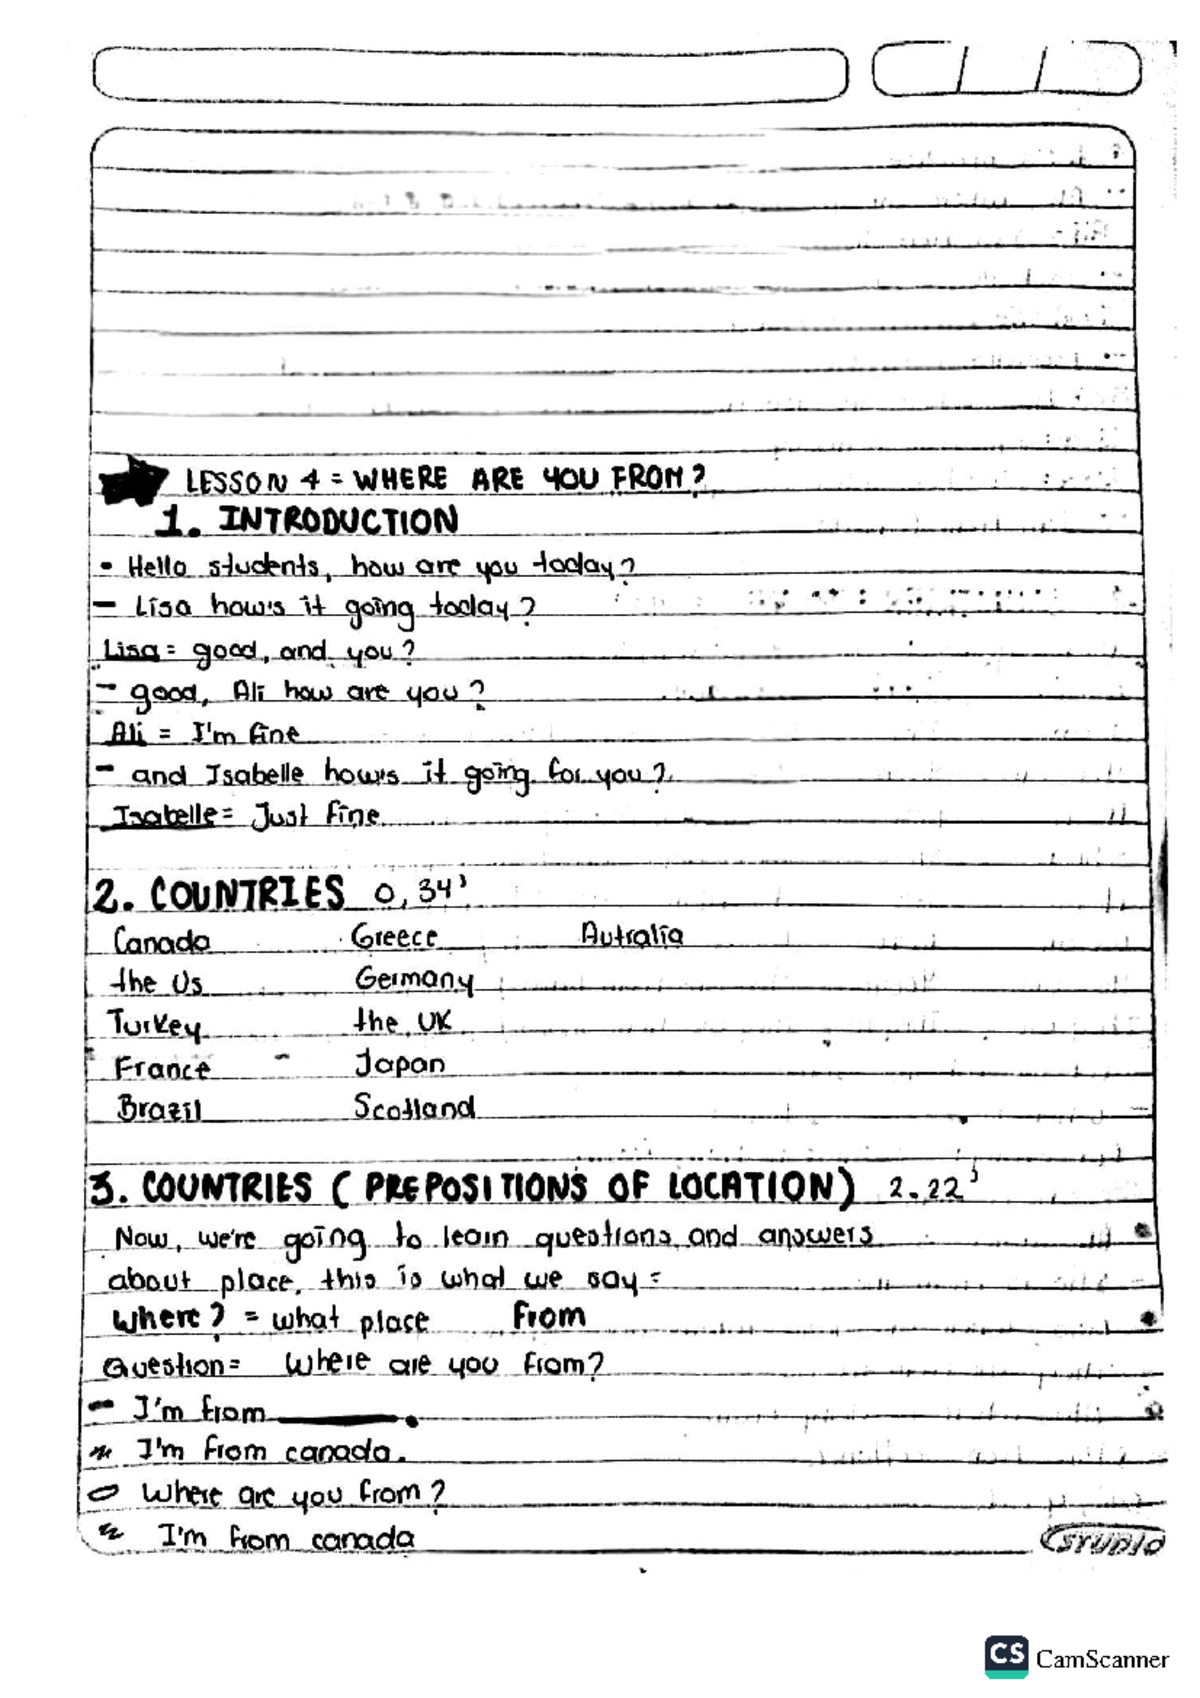 LESSON 4 = WHERE ARE YOU FROM?
1. INTRODUCTION
• Hello students, how are you today?
– Lisa how's it going today?
Lisa = good, and you?
– good, Ali how are you?
Ali = I'm fine
– and Isabelle how's it going for you?
Isabelle = Just fine
2. COUNTRIES 0,34'
Canada Greece Autralia
the Us Germany
Turkey the UK
France Japan
Brazil Scotland
3. COUNTRIES (PREPOSITIONS OF LOCATION) 2.22'
Now, we're going to learn questions and answers
about place, this is what we say =
Where? = what place From
Question = Where are you from?
– I'm from ________.
I'm from canada.
Where are you from?
I'm from canada
STUDIO
CS CamScanner